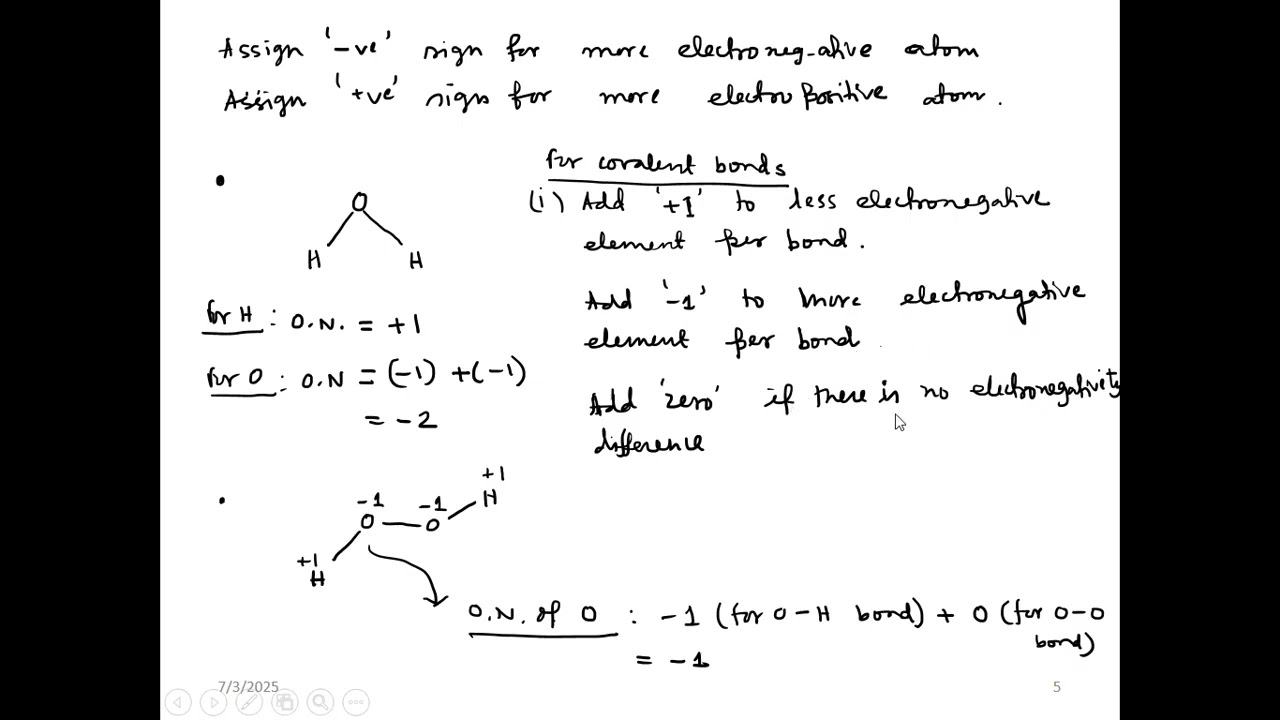 Assign '-ve' sign for more electroneg-ative atom
Assign '+ve' sign for more electropositive atom.
for covalent bonds
(i) Add '+1' to less electronegative
element per bond.
Add '-1' to more electronegative
element per bond
Add 'zero' if there is no electronegativity
difference
O
H H
for H : O.N. = +1
for O : O.N = (-1) + (-1)
= -2
+1
H
-1 -1
O O
+1
H
O.N. of O : -1 (for O-H bond) + O (for O-O
bond)
= -1
7/3/2025
5